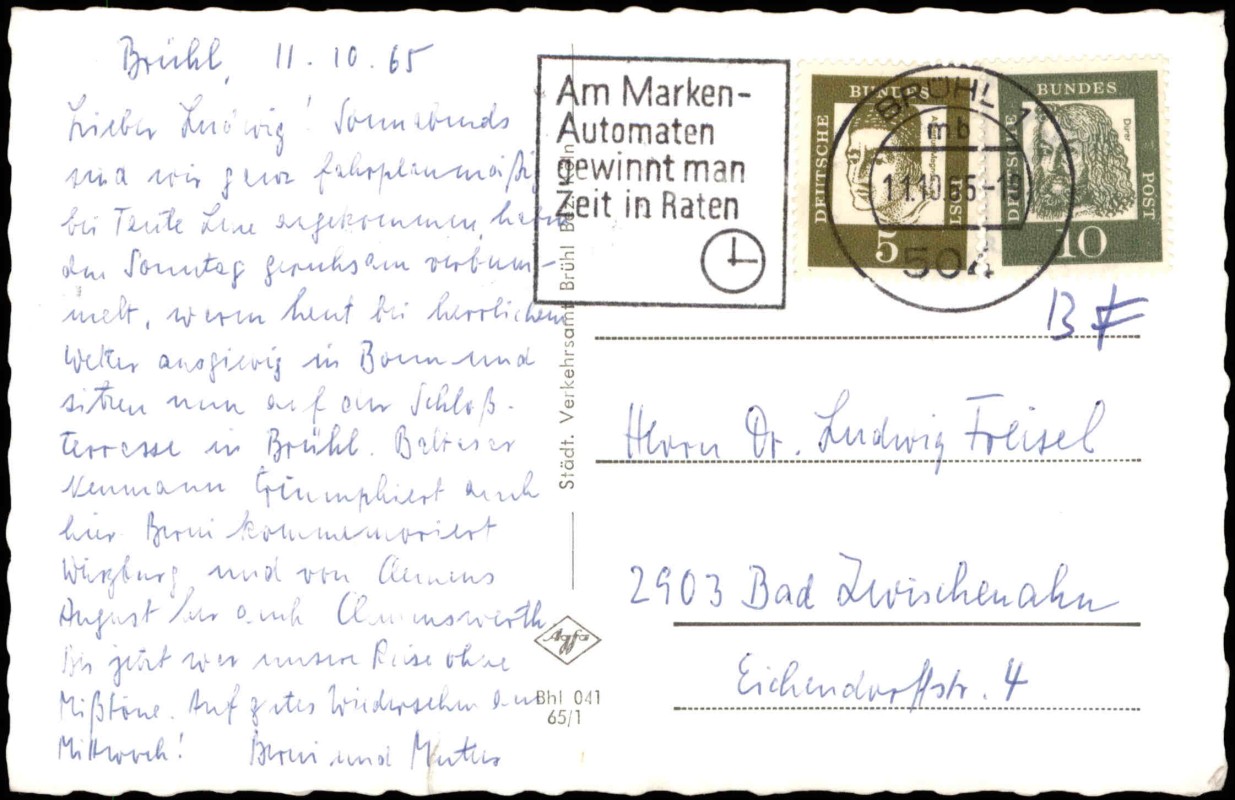 Brühl, 11.10.65
Lieber Ludwig! Sonnabends
sind wir ganz fahrplanmäßig
bei Tante Lene angekommen, haben
den Sonntag geruhsam verbum-
melt, waren heut bei herrlichem
Wetter ausgiebig in Bonn und
sitzen nun auf der Schloß-
terrasse in Brühl. Baltasar
Neumann triumphiert auch
hier. Berni kommemoriert
Würzburg und von Clemens
August her auch Clemenswerth.
Bis jetzt war unsere Reise ohne
Mißtöne. Auf gutes Wiedersehn am
Mittwoch! Berni und Mutter
Städt. Verkehrsamt Brühl Bez. Köln
Agfa
Bhl 041
65/1
Am Marken-
Automaten
gewinnt man
Zeit in Raten
DEUTSCHE BUNDESPOST
5
DEUTSCHE BUNDESPOST
Dürer
10
BRÜHL 1
mb
11.10.65-19
504
B F
Herrn Dr. Ludwig Freisel
2903 Bad Zwischenahn
Eichendorffstr. 4